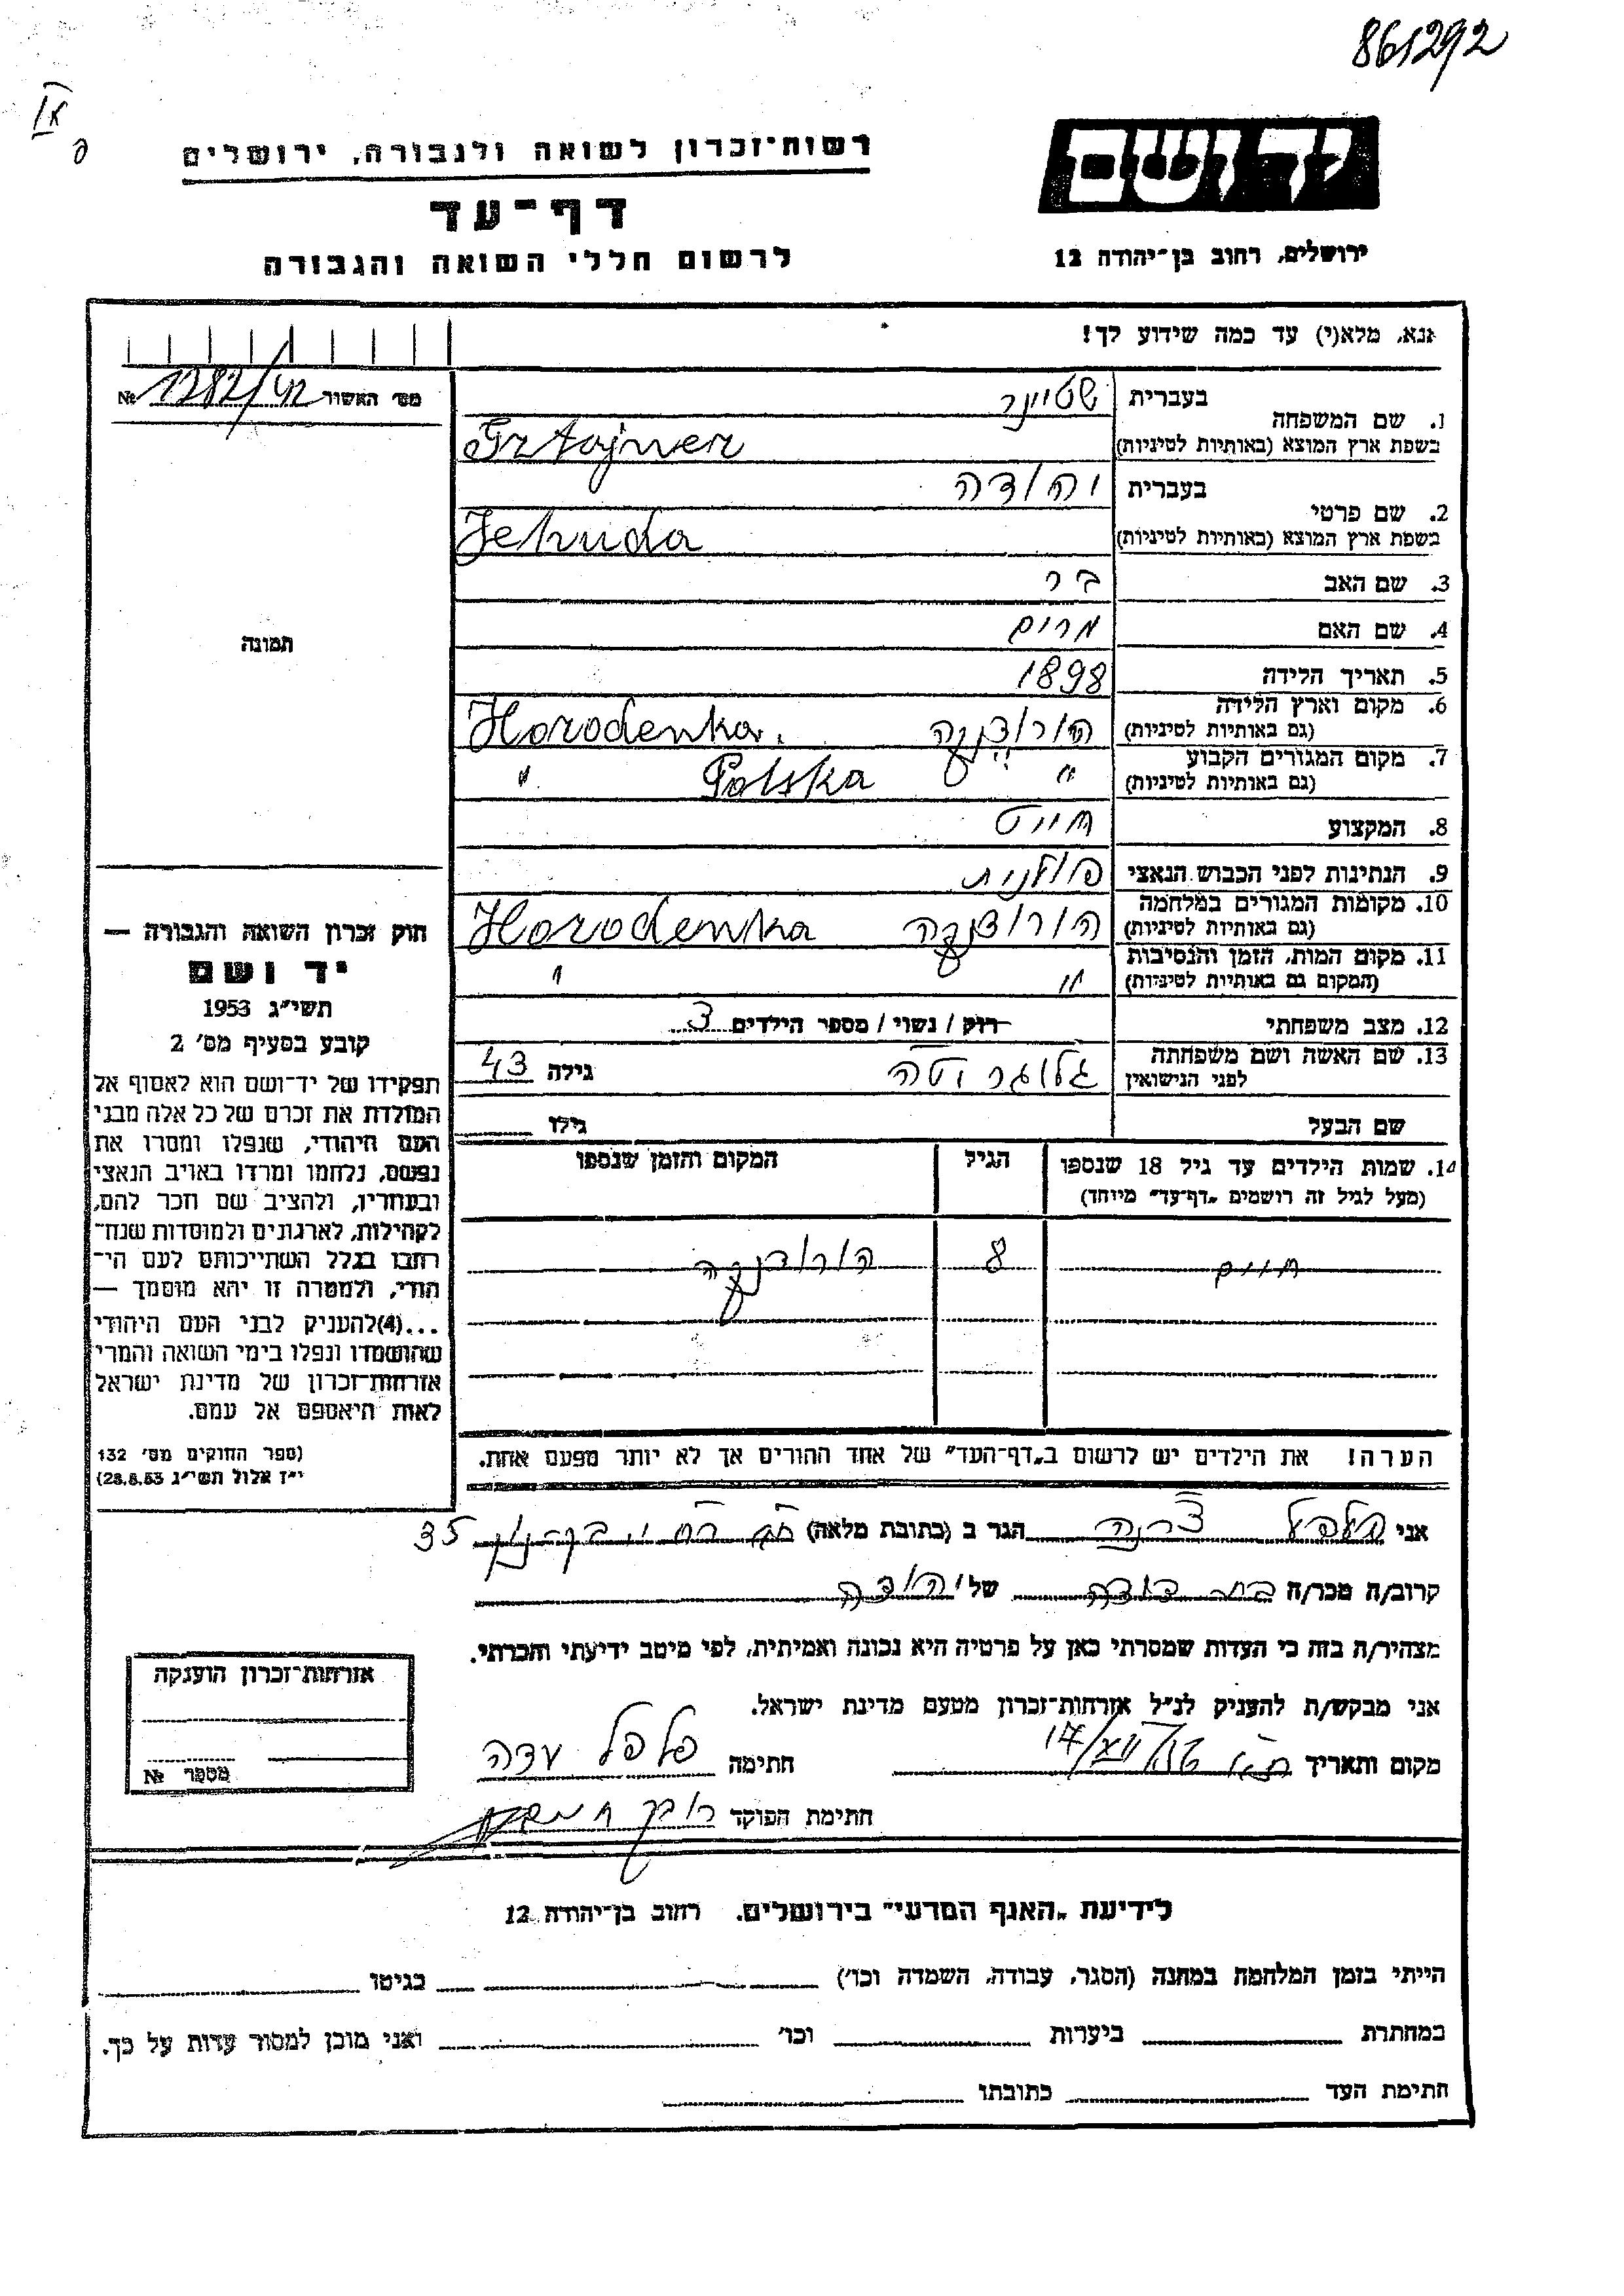 861292
רשות־זכרון לשואה ולגבורה, ירושלים
יד ושם
דף־עד
לרשום חללי השואה והגבורה
ירושלים, רחוב בן־יהודה 12
אנא, מלא(י) עד כמה שידוע לך!
מס׳ האשור № 1282/42
1. שם המשפחה בעברית שטיינר
בשפת ארץ המוצא (באותיות לטיניות) Sztajner
2. שם פרטי בעברית יהודה
בשפת ארץ המוצא (באותיות לטיניות) Jehuda
3. שם האב בר
4. שם האם מרים
תמונה
5. תאריך הלידה 1898
6. מקום וארץ הלידה
(גם באותיות לטיניות) הורודנקה Horodenka
7. מקום המגורים הקבוע
(גם באותיות לטיניות) " Polska "
8. המקצוע חייט
9. הנתינות לפני הכבוש הנאצי פולנית
10. מקומות המגורים במלחמה
(גם באותיות לטיניות) הורודנקה Horodenka
11. מקום המות, הזמן והנסיבות
(המקום גם באותיות לטיניות) " "
12. מצב משפחתי רוק / נשוי / מספר הילדים 3
13. שם האשה ושם משפחתה
לפני הנישואין גלוגר יטה גילה 43
שם הבעל גילו
14. שמות הילדים עד גיל 18 שנספו הגיל המקום והזמן שנספו
(מעל לגיל זה רושמים „דף־עד" מיוחד)
חיים 8 הורודנקה
הערה! את הילדים יש לרשום ב„דף־העד" של אחד ההורים אך לא יותר מפעם אחת.
חוק זכרון השואה והגבורה —
יד ושם
תשי״ג 1953
קובע בסעיף מס׳ 2
תפקידו של יד־ושם הוא לאסוף אל
המולדת את זכרם של כל אלה מבני
העם היהודי, שנפלו ומסרו את
נפשם, נלחמו ומרדו באויב הנאצי
ובעוזריו, ולהציב שם וזכר להם,
לקהילות, לארגונים ולמוסדות שנח־
רבו בגלל השתייכותם לעם הי־
הודי, ולמטרה זו יהא מוסמך —
...(4)להעניק לבני העם היהודי
שהושמדו ונפלו בימי השואה והמרי
אזרחות־זכרון של מדינת ישראל
לאות היאספם אל עמם.
(ספר החוקים מס׳ 132
י״ז אלול תשי״ג 28.8.53)
אני פלפל עדנה הגר ב (כתובת מלאה) 35
קרוב/ה מכר/ה בת דודה של יהודה
מצהיר/ה בזה כי העדות שמסרתי כאן על פרטיה היא נכונה ואמיתית, לפי מיטב ידיעתי והכרתי.
אני מבקש/ת להעניק לנ״ל אזרחות־זכרון מטעם מדינת ישראל.
מקום ותאריך ת״א 17/XII 56 חתימה פלפל עדה
חתימת הפוקד
אזרחות־זכרון הוענקה
מספר №
לידיעת „האגף המדעי" בירושלים, רחוב בן־יהודה 12
הייתי בזמן המלחמה במחנה (הסגר, עבודה, השמדה וכו׳) בגיטו
במחתרת ביערות וכו׳ ואני מוכן למסור עדות על כך.
חתימת העד כתובתו